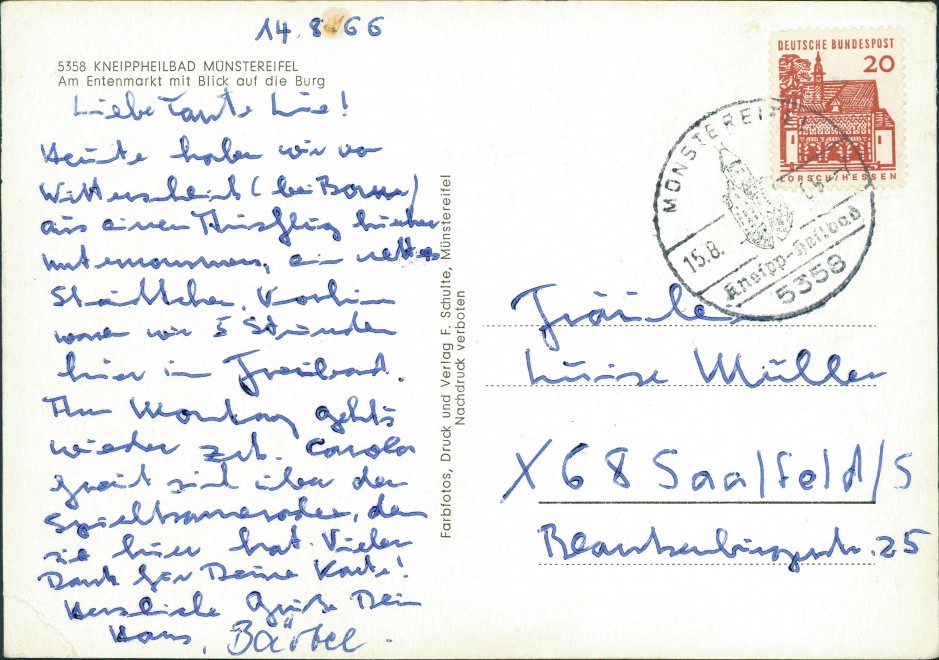 14.8.66
5358 KNEIPPHEILBAD MÜNSTEREIFEL
Am Entenmarkt mit Blick auf die Burg
Liebe Tante Luise!
Heute haben wir von
Witterschlick (bei Bonn)
aus einen Ausflug hierher
unternommen, ein nettes
Städtchen. Vorhin
waren wir 5 Stunden
hier im Freibad.
Am Montag gehts
wieder zck. Carola
freut sich über den
Spielkameraden, den
sie hier hat. Vielen
Dank für Deine Karte!
Herzliche Grüße Dein
Hans, Bärbel.
Farbfotos, Druck und Verlag F. Schulte, Münstereifel
Nachdruck verboten
DEUTSCHE BUNDESPOST
20
LORSCH/HESSEN
MÜNSTEREIFEL
15.8.
Kneipp-Heilbad
5358
Fräulein
Luise Müller
X 68 Saalfeld/S
Blankenburgerstr. 25